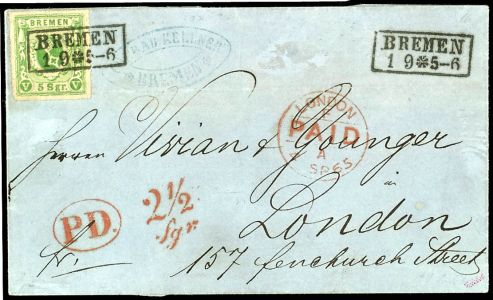 BREMEN
V 5 Sgr. V
BREMEN
1 9*5-6
BREMEN
BREMEN
1 9*5-6
LONDON
PAID
A
SP 65
Herren Vivian & Younger
in
London
157 fenchurch Street
P.D.
2 1/2
Sgr.
fr.